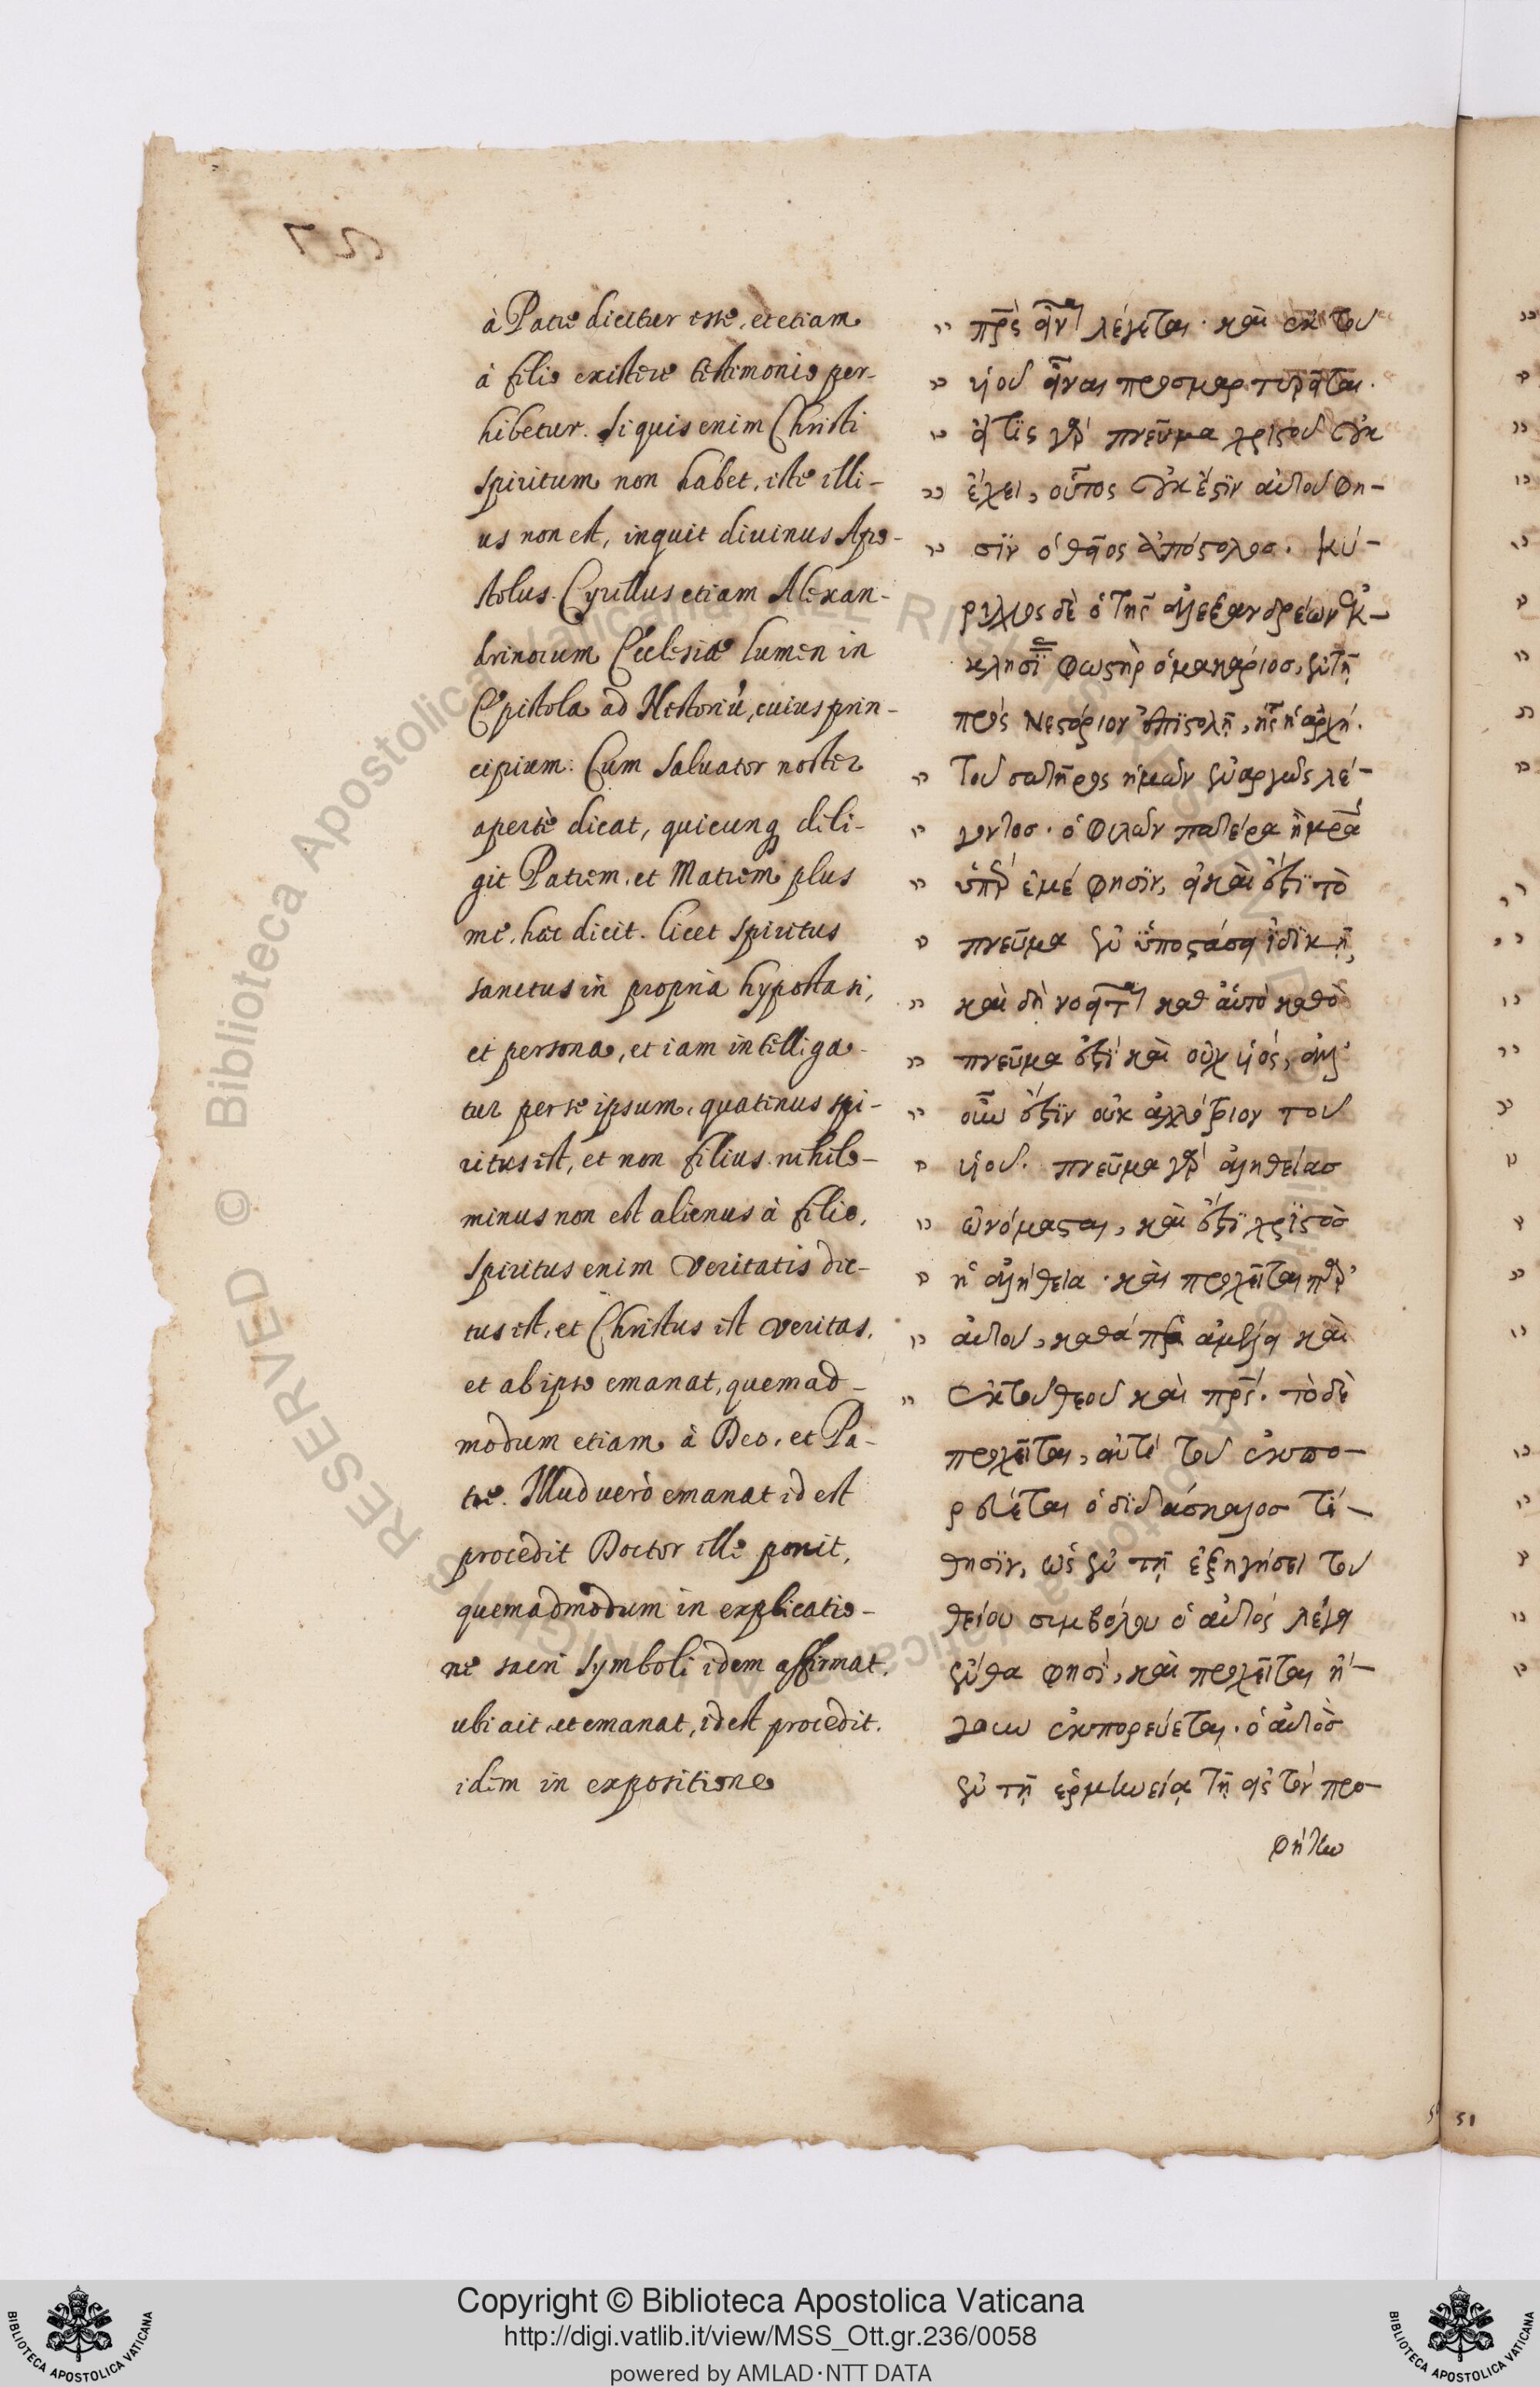 à Patre dicitur esse, et etiam
à filio existere testimonio per-
hibetur. Si quis enim Christi
spiritum non habet, iste illi-
us non est, inquit divinus Apo-
stolus. Cyrillus etiam Alexan-
drinorum Ecclesiæ lumen in
Epistola ad Nestoriū, cuius prin-
cipium: Cum Salvator noster
aperte dicat, quicunq dili-
git Patrem, et Matrem plus
me, hæc dicit. licet Spiritus
sanctus in propria hypostasi,
et persona, et iam intelliga-
tur per se ipsum, quatenus spi-
ritus est, et non filius. nihilo-
minus non est alienus à filio,
Spiritus enim Veritatis dic-
tus est, et Christus est veritas,
et ab ipso emanat, quemad-
modum etiam à Deo, et Pa-
tre. Illud verò emanat id est
procedit Doctor ille ponit,
quemadmodum in explicatio-
ne sacri Symboli idem affirmat,
ubi ait, et emanat, id est procedit.
idem in expositione
πρς εἶναι λέγεται· καὶ ἐκ τοῦ
υἱοῦ εἶναι προσμαρτυρεῖται.
εἴ τις γὰρ πνεῦμα χριστοῦ οὐκ
ἔχει, οὗτος οὐκ ἔστιν αὐτοῦ φη-
σὶν ὁ θεῖος ἀπόστολος. Κύ-
ριλλος δὲ ὁ τῆς ἀλεξανδρέων ἐκ-
κλησί φωστὴρ ὁ μακάριος, ἐν τῇ
πρὸς Νεστόριον ἐπιστολῇ, ἧς ἡ ἀρχή.
τοῦ σωτῆρος ἡμῶν ἐναργῶς λέ-
γοντος· ὁ φιλῶν πατέρα ἢ μρα
ὑπὲρ ἐμέ φησιν, εἰ καὶ ἔστι τὸ
πνεῦμα ἐν ὑποστάσει ἰδικῇ,
καὶ δὴ νοεῖται καθ' αὑτὸ καθὸ
πνεῦμα ἐστὶ καὶ οὐχ υἱός, ἀλλ'
οὖν ἔστιν οὐκ ἀλλότριον τοῦ
υἱοῦ. πνεῦμα γὰρ ἀληθείας
ὠνόμασται, καὶ ἔστι χριστὸς
ἡ ἀλήθεια· καὶ προχεῖται παρ'
αὐτοῦ, καθάπερ ἀμέλει καὶ
ἐκ τοῦ θεοῦ καὶ πρς. τὸ δὲ
προχεῖται, ἀντὶ τοῦ ἐκπο-
ρεύεται ὁ διδάσκαλος τί-
θησιν, ὡς ἐν τῇ ἐξηγήσει τοῦ
θείου συμβόλου ὁ αὐτός λέγει
ἔνθα φησὶ, καὶ προχεῖται ἤ-
γουν ἐκπορεύεται. ὁ αὐτὸς
ἐν τῇ ἑρμηνείᾳ τῇ εἰς τὸν προ-
φήτην
51
Copyright © Biblioteca Apostolica Vaticana
http://digi.vatlib.it/view/MSS_Ott.gr.236/0058
powered by AMLAD·NTT DATA
BIBLIOTECA APOSTOLICA VATICANA
BIBLIOTECA APOSTOLICA VATICANA